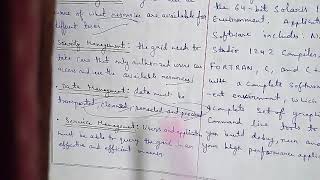 some of what resources are available for
different tasks.
Security Management: the grid need to
take care that only authorized users can
access and use the available resources.
Data Management: data must be
transported, cleansed, and processed
• Services Management: Users and applications
must be able to query the grid in an
effective and efficient manner.
the 64-bit Solaris
Environment. Applicat
Software include: N
Studio 12 Compiler
FORTRAN, C, and C+
with a complete softwar
ment environment, which
complete set of graph
Command line tools to
you build, debug, run and
your high performance applic